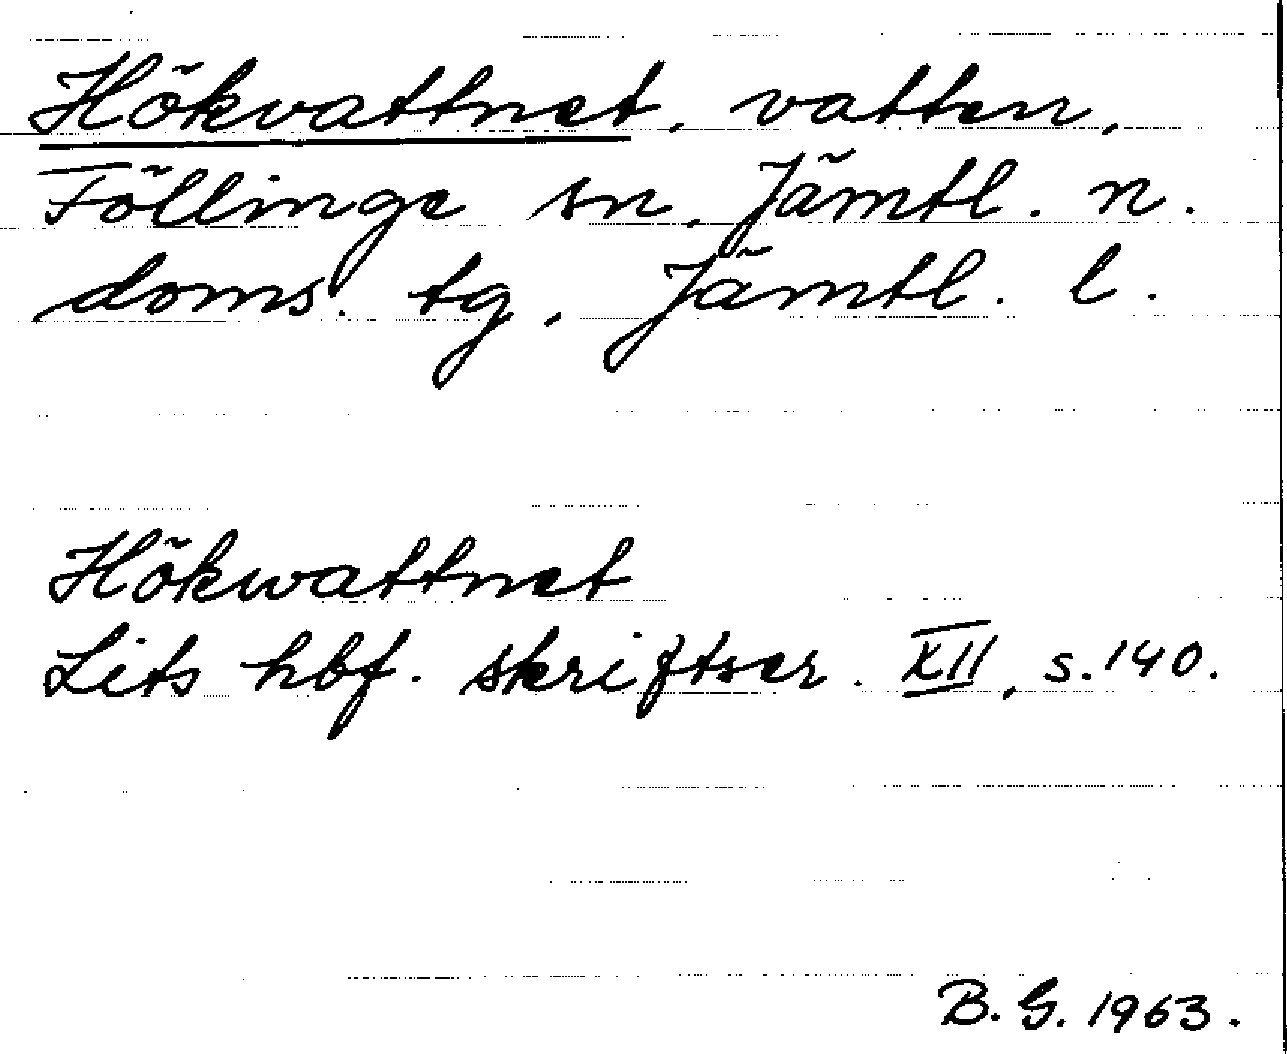 Hökvattnet, vatten,
Föllinge sn, Jämtl. n.
doms. tg, Jämtl. l.
Hökwattnet
Lits hbf. skriftser. XII, s. 140.
B. G. 1963.